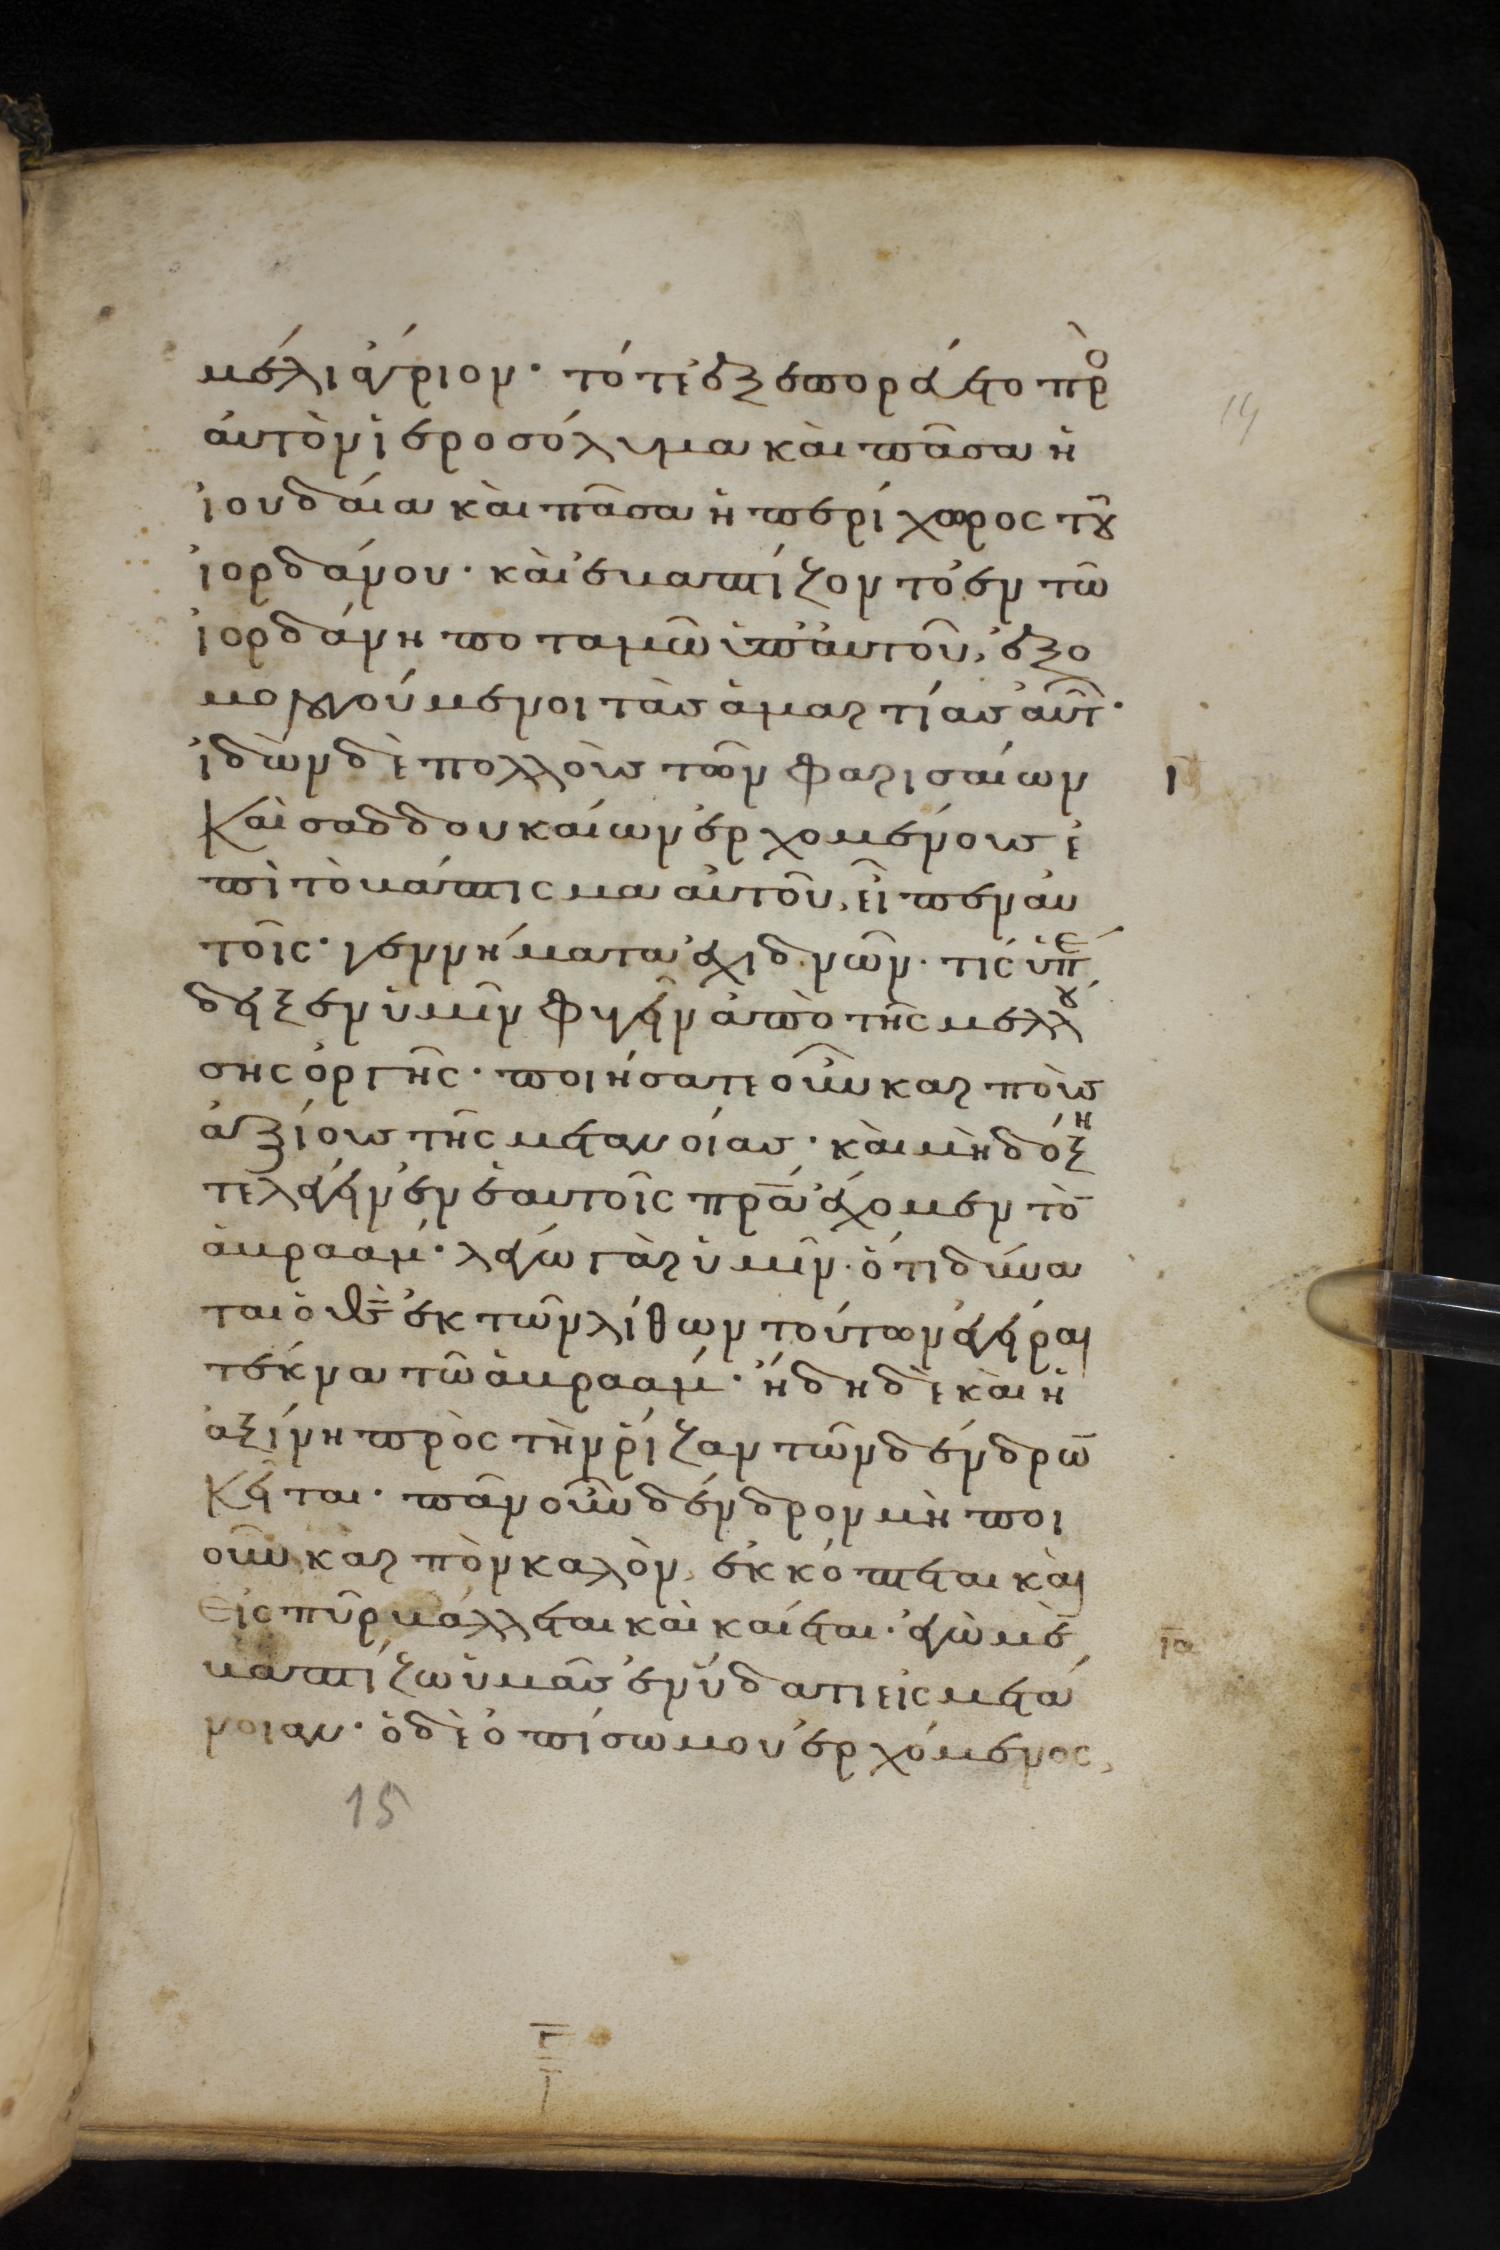 μέλι ἄγριον· τότε ἐξεπορεύετο πρὸ
14
αὐτὸν ἱεροσόλυμα καὶ πᾶσα ἡ
ἰουδαία καὶ πᾶσα ἡ περίχωρος τοῦ
ἰορδάνου· καὶ ἐβαπτίζοντο ἐν τῶ
ἰορδάνη ποταμῶ ὑπ' αὐτοῦ, ἐξο
μολογούμενοι τὰς ἁμαρτίας αὐτ·
ἰδὼν δὲ πολλοὺς τῶν φαρισαίων
ι
Καὶ σαδδουκαίων ἐρχομένους ἐ
πὶ τὸ βάπτισμα αὐτοῦ, εἶπεν αὐ
τοῖς· γεννήματα ἐχιδνῶν· τίς ὑπέ
δειξεν ὑμῖν φυγεῖν ἀπὸ τῆς μελλού
σης ὀργῆς· ποιήσατε οὖν καρποὺς
ἀξίους τῆς μετανοίας· καὶ μὴ δόξη
τε λέγειν ἐν ἑαυτοῖς πρ̅α ἔχομεν τὸ̅
ἀβραάμ· λέγω γὰρ ὑμῖν· ὅτι δύνα
ται ὁ θ̅ς̅ ἐκ τῶν λίθων τούτων ἐγεῖραι
τέκνα τῶ ἀβραάμ· ἤδη δὲ καὶ ἡ
ἀξίνη πρὸς τὴν ῥίζαν τῶν δένδρω̅
Κεῖται· πᾶν οὖν δένδρον μὴ ποι
οῦν καρπὸν καλὸν, ἐκκόπτεται καὶ
εἰς πῦρ βάλλεται καὶ καίεται· ἐγὼ μὲ̅
ι̅α
βαπτίζω ὑμᾶς ἐν ὕδατι εἰς μετά
νοιαν· ὁ δὲ ὀπίσω μου ἐρχόμενος,
15